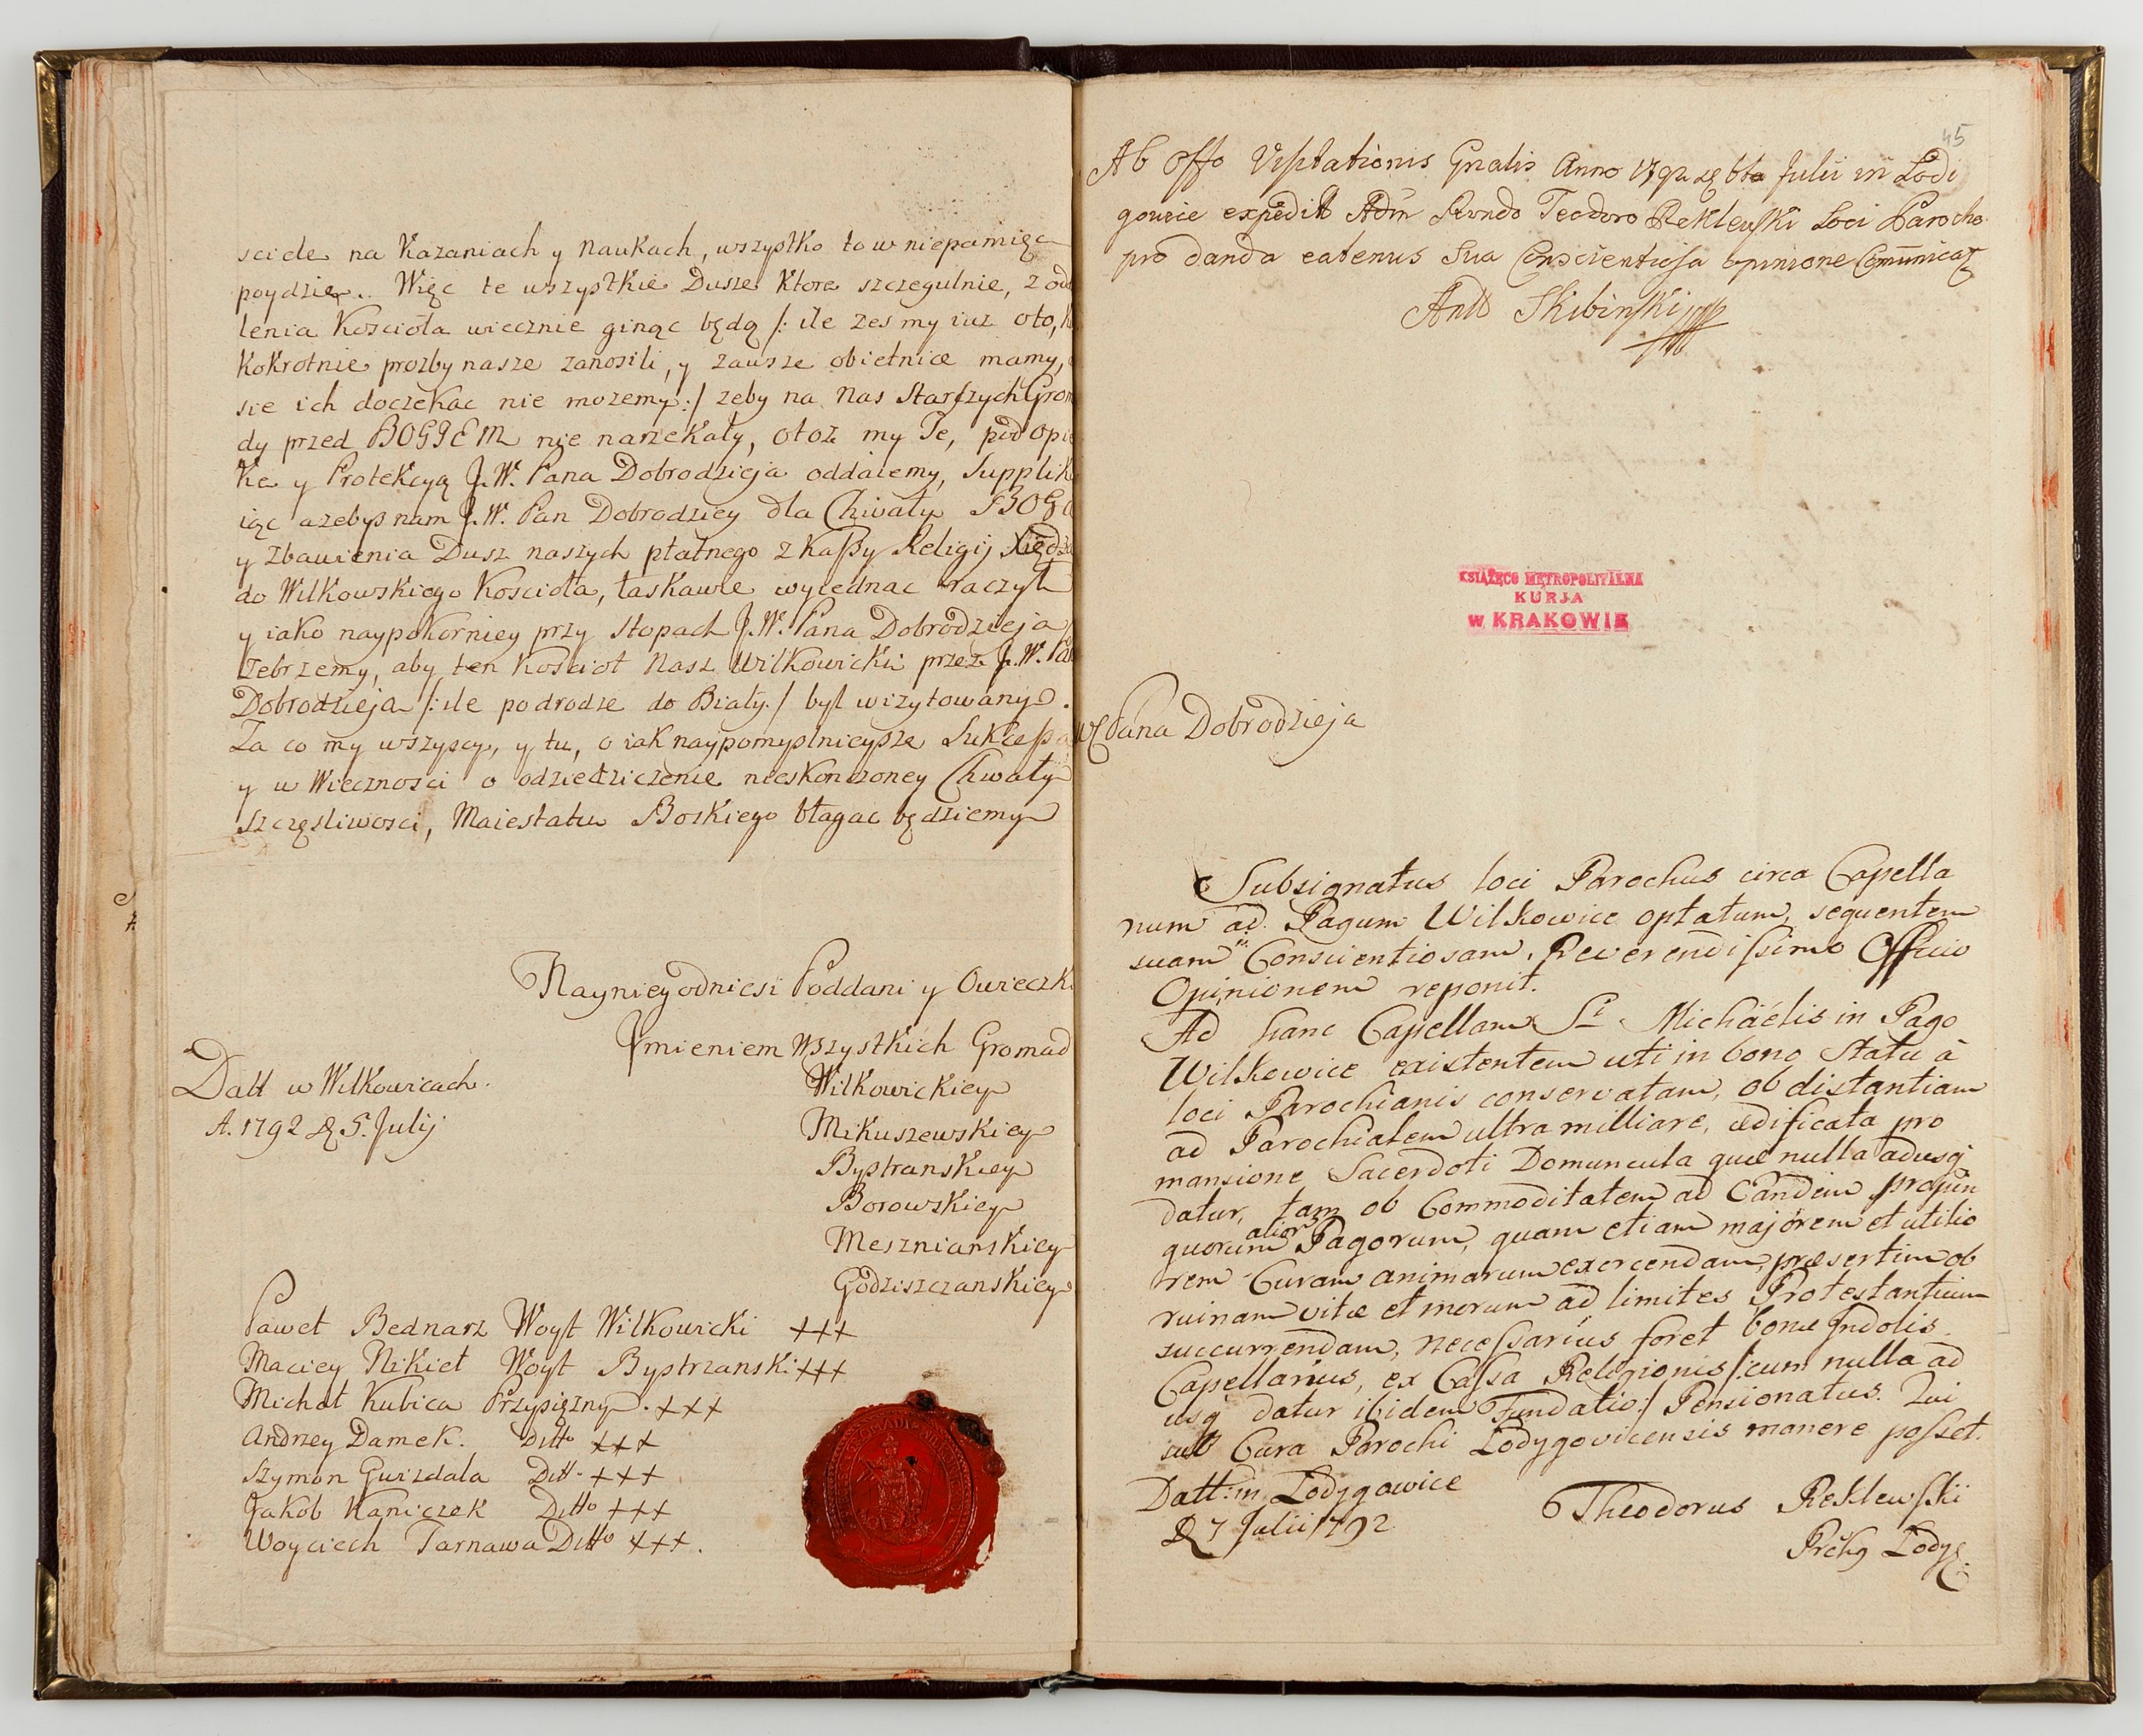 sciele na Kazaniach y Naukach, wszystko to w niepamięc
poydzie.. Więc te wszystkie Dusze Ktore szczegulnie, z od
lenia Kościoła wiecznie ginąc będą /: ile żes my iuz oto,
Kokrotnie prozby nasze zanosili, y zawsze obietnice mamy,
sie ich doczekac nie mozemy:/ zeby na Nas Starszych Grom
dy przed BOGIEM nie narzekały, otoz my Te, pod opie
Kę y Protekcyą J.W. Pana Dobrodzieja oddaiemy, Supplik
iąc azebys nam J.W. Pan Dobrodziey dla Chwały BOG
y Zbawienia Dusz naszych płatnego z Kassy Religij Xiędza
do Wilkowskiego Kościoła, łaskawie wyiednac raczył
y iako naypokorniey przy stopach J.W. Pana Dobrodzieja
żebrzemy, aby ten Kościoł Nasz Wilkowicki przez J.W. Pa
Dobrodzieja /: ile po drodze do Biały:/ był wizytowany.
Za co my wszyscy, y tu, o iak naypomyslnieysze Sukcessa
y w Wieczności o odziedziczenie nieskończoney Chwały
Szczęsliwosci, Maiestatu Boskiego błagac będziemy
Nayniegodniesi Poddani y Owieczki
Imieniem Wszystkich Gromad
Datt w Wilkowicach.
A. 1792 D. 5. Julij
Wilkowickiey
Mikuszewskiey
Bystranskiey
Borowskiey
Meszniańskiey
Godziszczanskiey
Paweł Bednarz Woyt Wilkowicki +++
Maciey Nikiel Woyt Bystrzanski +++
Michał Kubica Przysiężny. +++
Andrzey Damek. Ditto +++
Szymon Gwizdala Ditt. +++
Jakob Kaniczek Ditto +++
Woyciech Tarnawa Ditto +++.
45
Ab Offo Visitationis Gnalis Anno 1792 D. 6ta Julii in Lodi
gowice expedit Adm Rvndo Teodoro Reklewski Loci Parocho
pro danda eatenus Sua Conscientiosa opinione Communicat
Antt Skibinski mpp
KSIĄŻĘCO METROPOLITALNA
KURJA
w KRAKOWIE
W Pana Dobrodzieja
Subsignatus loci Parochus circa Capella
num ad Pagum Wilkowice optatum, sequentem
suam Conscientiosam, Reverendissimo Officio
Opinionem reponit.
Ad hanc Capellam Sti Michaëlis in Pago
Wilkowice existentem uti in bono Statu à
loci Parochianis conservatam, ob distantiam
ad Parochialem ultra milliare, ædificata pro
mansione Sacerdoti Domuncula quæ nulla adusq
datur, tam ob Commoditatem ad Eandem propin
quorum alior Pagorum, quam etiam majorem et utilio
rem Curam animarum exercendam, præsertim ob
ruinam vitæ et morum ad limites Protestantium
succurrendam, necessarius foret bonæ Indolis
Capellanus, ex Cassa Religionis /: cum nulla ad
usq datur ibidem Fundatio:/ Pensionatus. Qui
sub Cura Parochi Lodygovicensis manere posset.
Datt: in Lodygowice
D 7 Julii 1792
Theodorus Reklewski
Prchg Lodyg.